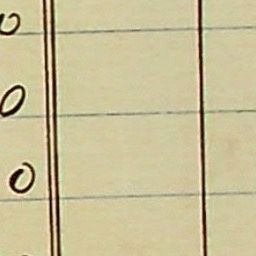 0
0
0